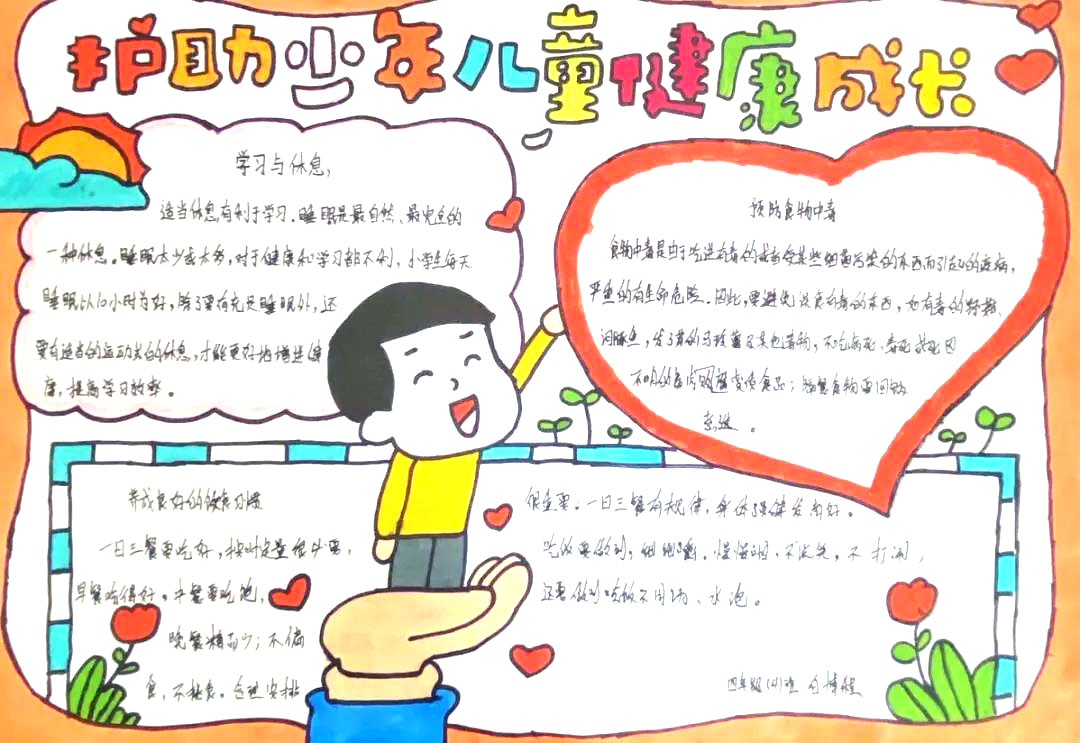 护助少年儿童健康成长
学习与休息,
适当休息有利于学习.睡眠是最自然、最
一种休息。睡眠太少或太多,对于健康和学习都不利,小学生每天
睡眠以10小时为好,除了要有充足睡眠外,还
要有适当的运动式的休息,才能更好地增进健
康,提高学习效率。
预防食物中毒
食物中毒是由于吃进有毒的或被某些细菌污染的东西而引起的疾病,
严重的有生命危险.因此,要避免误食有毒的东西,如有毒的野
河豚鱼,发了芽的马铃薯及其他毒物,不吃病死、毒死或死因
不明的 变质食品;
养成良好的饮食习惯
一日三餐要吃好,按时定量很必要,
早餐吃得好。中餐要吃饱,
晚餐精而少;不偏
食,不挑食。合理安排
很重要.一日三餐有规律,身体强健发育好。
吃饭要做到,细细嚼.慢慢咽,不说笑,不打闹,
还要做到吃饭不用汤、水泡。
四年级(4)班